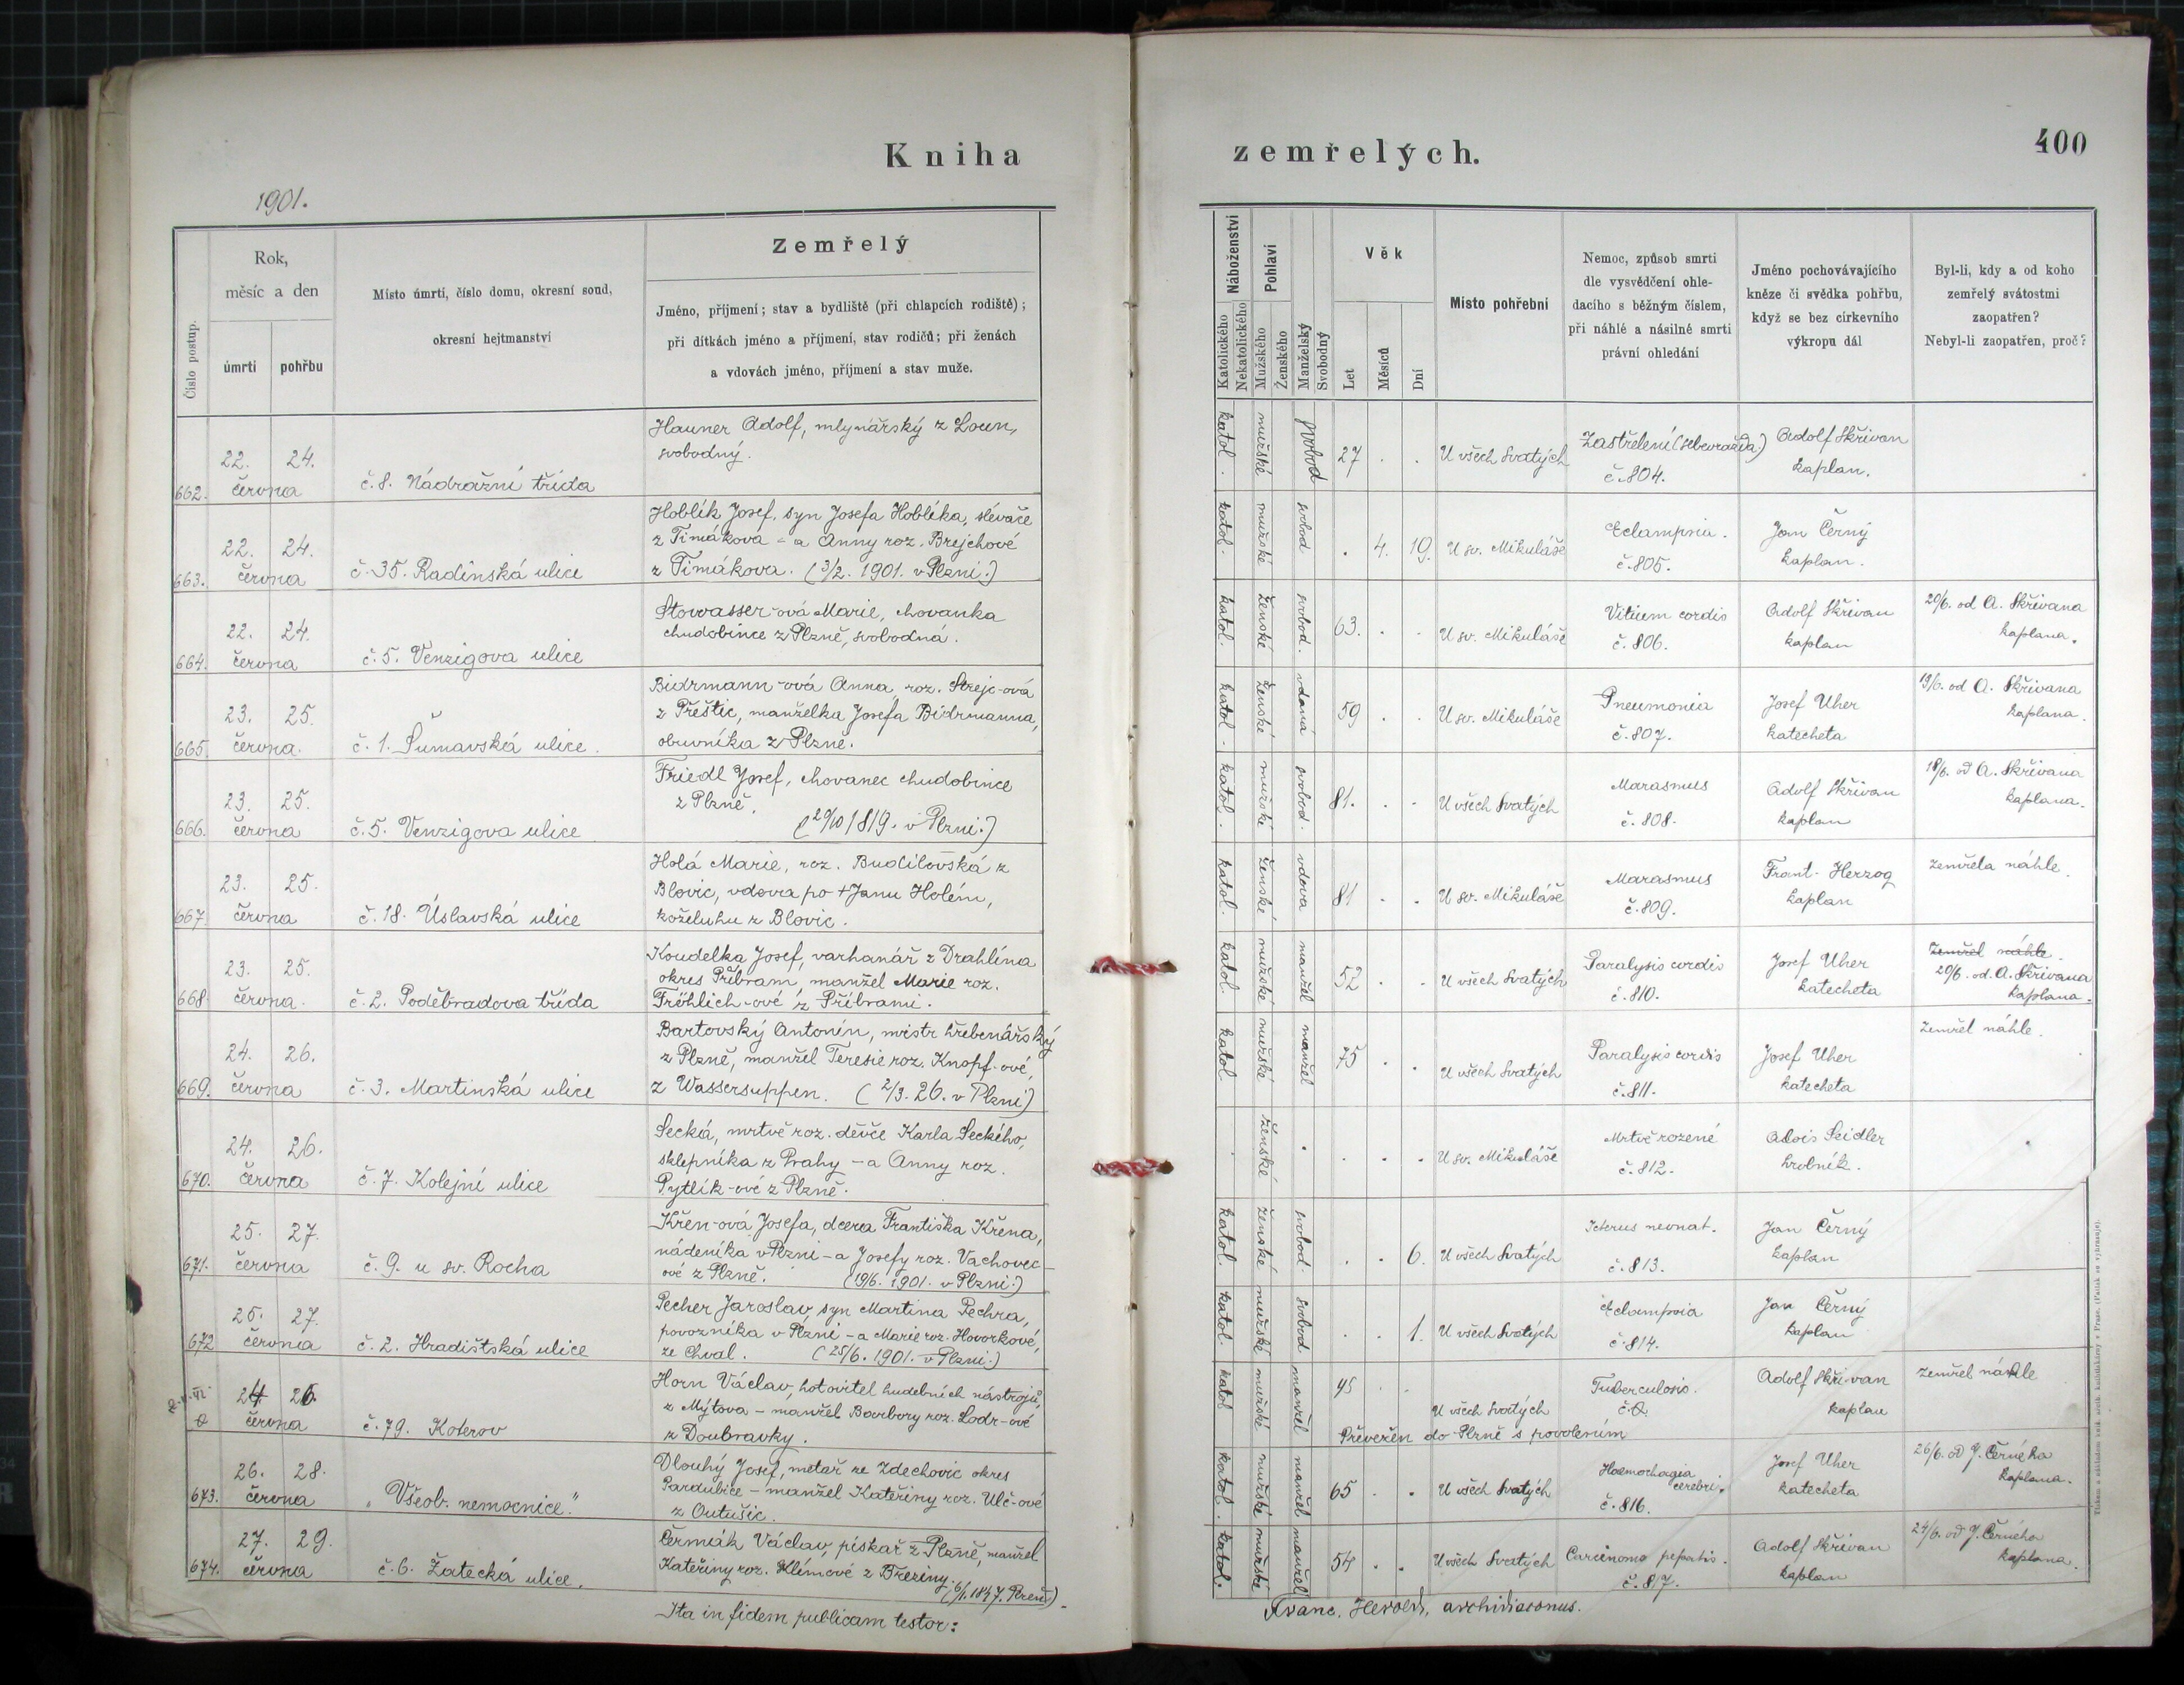 Kniha
zemřelých.
400
1901.
Číslo postup.
Rok,
měsíc a den
úmrtí
pohřbu
Místo úmrtí, číslo domu, okresní soud,
okresní hejtmanství
Zemřelý
Jméno, příjmení; stav a bydliště (při chlapcích rodiště);
při dítkách jméno a příjmení, stav rodičů; při ženách
a vdovách jméno, příjmení a stav muže.
Náboženství
Katolického
Nekatolického
Pohlaví
Mužského
Ženského
Manželský
Svobodný
Věk
Let
Měsíců
Dní
Místo pohřební
Nemoc, způsob smrti
dle vysvědčení ohle-
dacího s běžným číslem,
při náhlé a násilné smrti
právní ohledání
Jméno pochovávajícího
kněze či svědka pohřbu,
když se bez církevního
výkropu dál
Byl-li, kdy a od koho
zemřelý svátostmi
zaopatřen?
Nebyl-li zaopatřen, proč?
662.
22. 24.
června
č. 8. Nádražní třída
Hauner Adolf, mlynářský z Loun,
svobodný.
katol.
mužské
svobod
27 . .
U všech Svatých
Zastřelení (sebevražda)
č. 804.
Adolf Skřivan
kaplan.
663.
22. 24.
června
č. 35. Radinská ulice
Hoblík Josef, syn Josefa Hoblíka, slévače
z Timákova - a Anny roz. Brejchové
z Timákova. (3/2. 1901. v Plzni.)
katol.
mužské
svobod
. 4. 19.
U sv. Mikuláše
Eclampsia.
č. 805.
Jan Černý
kaplan.
664.
22. 24.
června
č. 5. Venzigova ulice
Stowasser-ová Marie, chovanka
chudobince z Plzně, svobodná.
katol.
ženské
svobod.
63. . .
U sv. Mikuláše
Vitium cordis
č. 806.
Adolf Skřivan
kaplan
20/6. od A. Skřivana
kaplana.
665.
23. 25.
června.
č. 1. Šumavská ulice.
Bidrmann-ová Anna, roz. Strejc-ová
z Přeštic, manželka Josefa Bidrmanna,
obuvníka z Plzně.
katol.
ženské
vdaná
59 . .
U sv. Mikuláše
Pneumonia
č. 807.
Josef Uher
katecheta
19/6. od A. Skřivana
kaplana.
666.
23. 25.
června
č. 5. Venzigova ulice
Friedl Josef, chovanec chudobince
z Plzně.
(29/10 1819. v Plzni.)
katol.
mužské
svobod.
81. . .
U všech Svatých
Marasmus
č. 808.
Adolf Skřivan
kaplan
18/6. od A. Skřivana
kaplana.
667.
23. 25.
června
č. 18. Úslavská ulice
Holá Marie, roz. Budilovská z
Blovic, vdova po † Janu Holém,
koželuhu z Blovic.
katol.
ženské
vdova
81 . .
U sv. Mikuláše
Marasmus
č. 809.
Frant. Herzog
kaplan
zemřela náhle.
668.
23. 25.
června.
č. 2. Poděbradova třída
Koudelka Josef, varhanář z Drahlína
okres Příbram, manžel Marie roz.
Fröhlich-ové z Příbrami.
katol.
mužské
manžel
52 . .
U všech Svatých
Paralysis cordis
č. 810.
Josef Uher
katecheta
Zemřel náhle.
20/6. od A. Skřivana
kaplana.
669.
24. 26.
června
č. 3. Martinská ulice
Bartovský Antonín, mistr hřebenářský
z Plzně, manžel Teresie roz. Knopf-ové,
z Wassersuppen. (2/3. 26. v Plzni)
katol
mužské
manžel
75 . .
U všech Svatých
Paralysis cordis
č. 811.
Josef Uher
katecheta
zemřel náhle.
670.
24. 26.
června
č. 7. Kolejní ulice
Secká, mrtvě roz. děvče Karla Seckého,
sklepníka z Prahy - a Anny roz.
Pytlík-ové z Plzně.
ženské
. . . .
U sv. Mikuláše
Mrtvě rozené
č. 812.
Alois Seidler
hrobník.
671.
25. 27.
června
č. 9. u sv. Rocha
Křen-ová Josefa, dcera Františka Křena,
nádeníka v Plzni - a Josefy roz. Vachovec-
ové z Plzně. (19/6. 1901. v Plzni.)
katol.
ženské
svobod.
. . 6.
U všech Svatých
Icterus neonat.
č. 813.
Jan Černý
kaplan
672
25. 27.
června
č. 2. Hradištská ulice
Pecher Jaroslav, syn Martina Pechra,
povozníka v Plzni - a Marie roz. Hovorkové,
ze Chval. (25/6. 1901. v Plzni.)
katol.
mužské
svobod
. . 1.
U všech Svatých
Eclampsia
č. 814.
Jan Černý
kaplan
24 26.
června
č. 79. Koterov
Horn Václav, hotovitel hudebních nástrojů,
z Mýtova - manžel Barbory roz. Lodr-ové
z Doubravky.
katol
mužské
manžel
45 . .
U všech Svatých
Převežen do Plzně s povolením
Tuberculosis.
č. 0.
Adolf Skřivan
kaplan
zemřel náhle
673.
26. 28.
června
„Všeob. nemocnice."
Dlouhý Josef, metař ze Zdechovic okres
Pardubice - manžel Kateřiny roz. Ulč-ové
z Outušic.
katol.
mužské
manžel
65 . .
U všech Svatých
Haemorhagia
cerebri.
č. 816.
Josef Uher
katecheta
26/6. od J. Černého
kaplana.
674.
27. 29.
června
č. 6. Žatecká ulice.
Čermák Václav, pískař z Plzně, manžel
Kateřiny roz. Klímové z Březiny.
katol.
mužské
manžel
54 . .
U všech Svatých
Carcinoma hepatis.
č. 817.
Adolf Skřivan
kaplan
24/6. od J. Černého
kaplana.
Ita in fidem publicam testor:
Franc. Herold, archidiaconus.